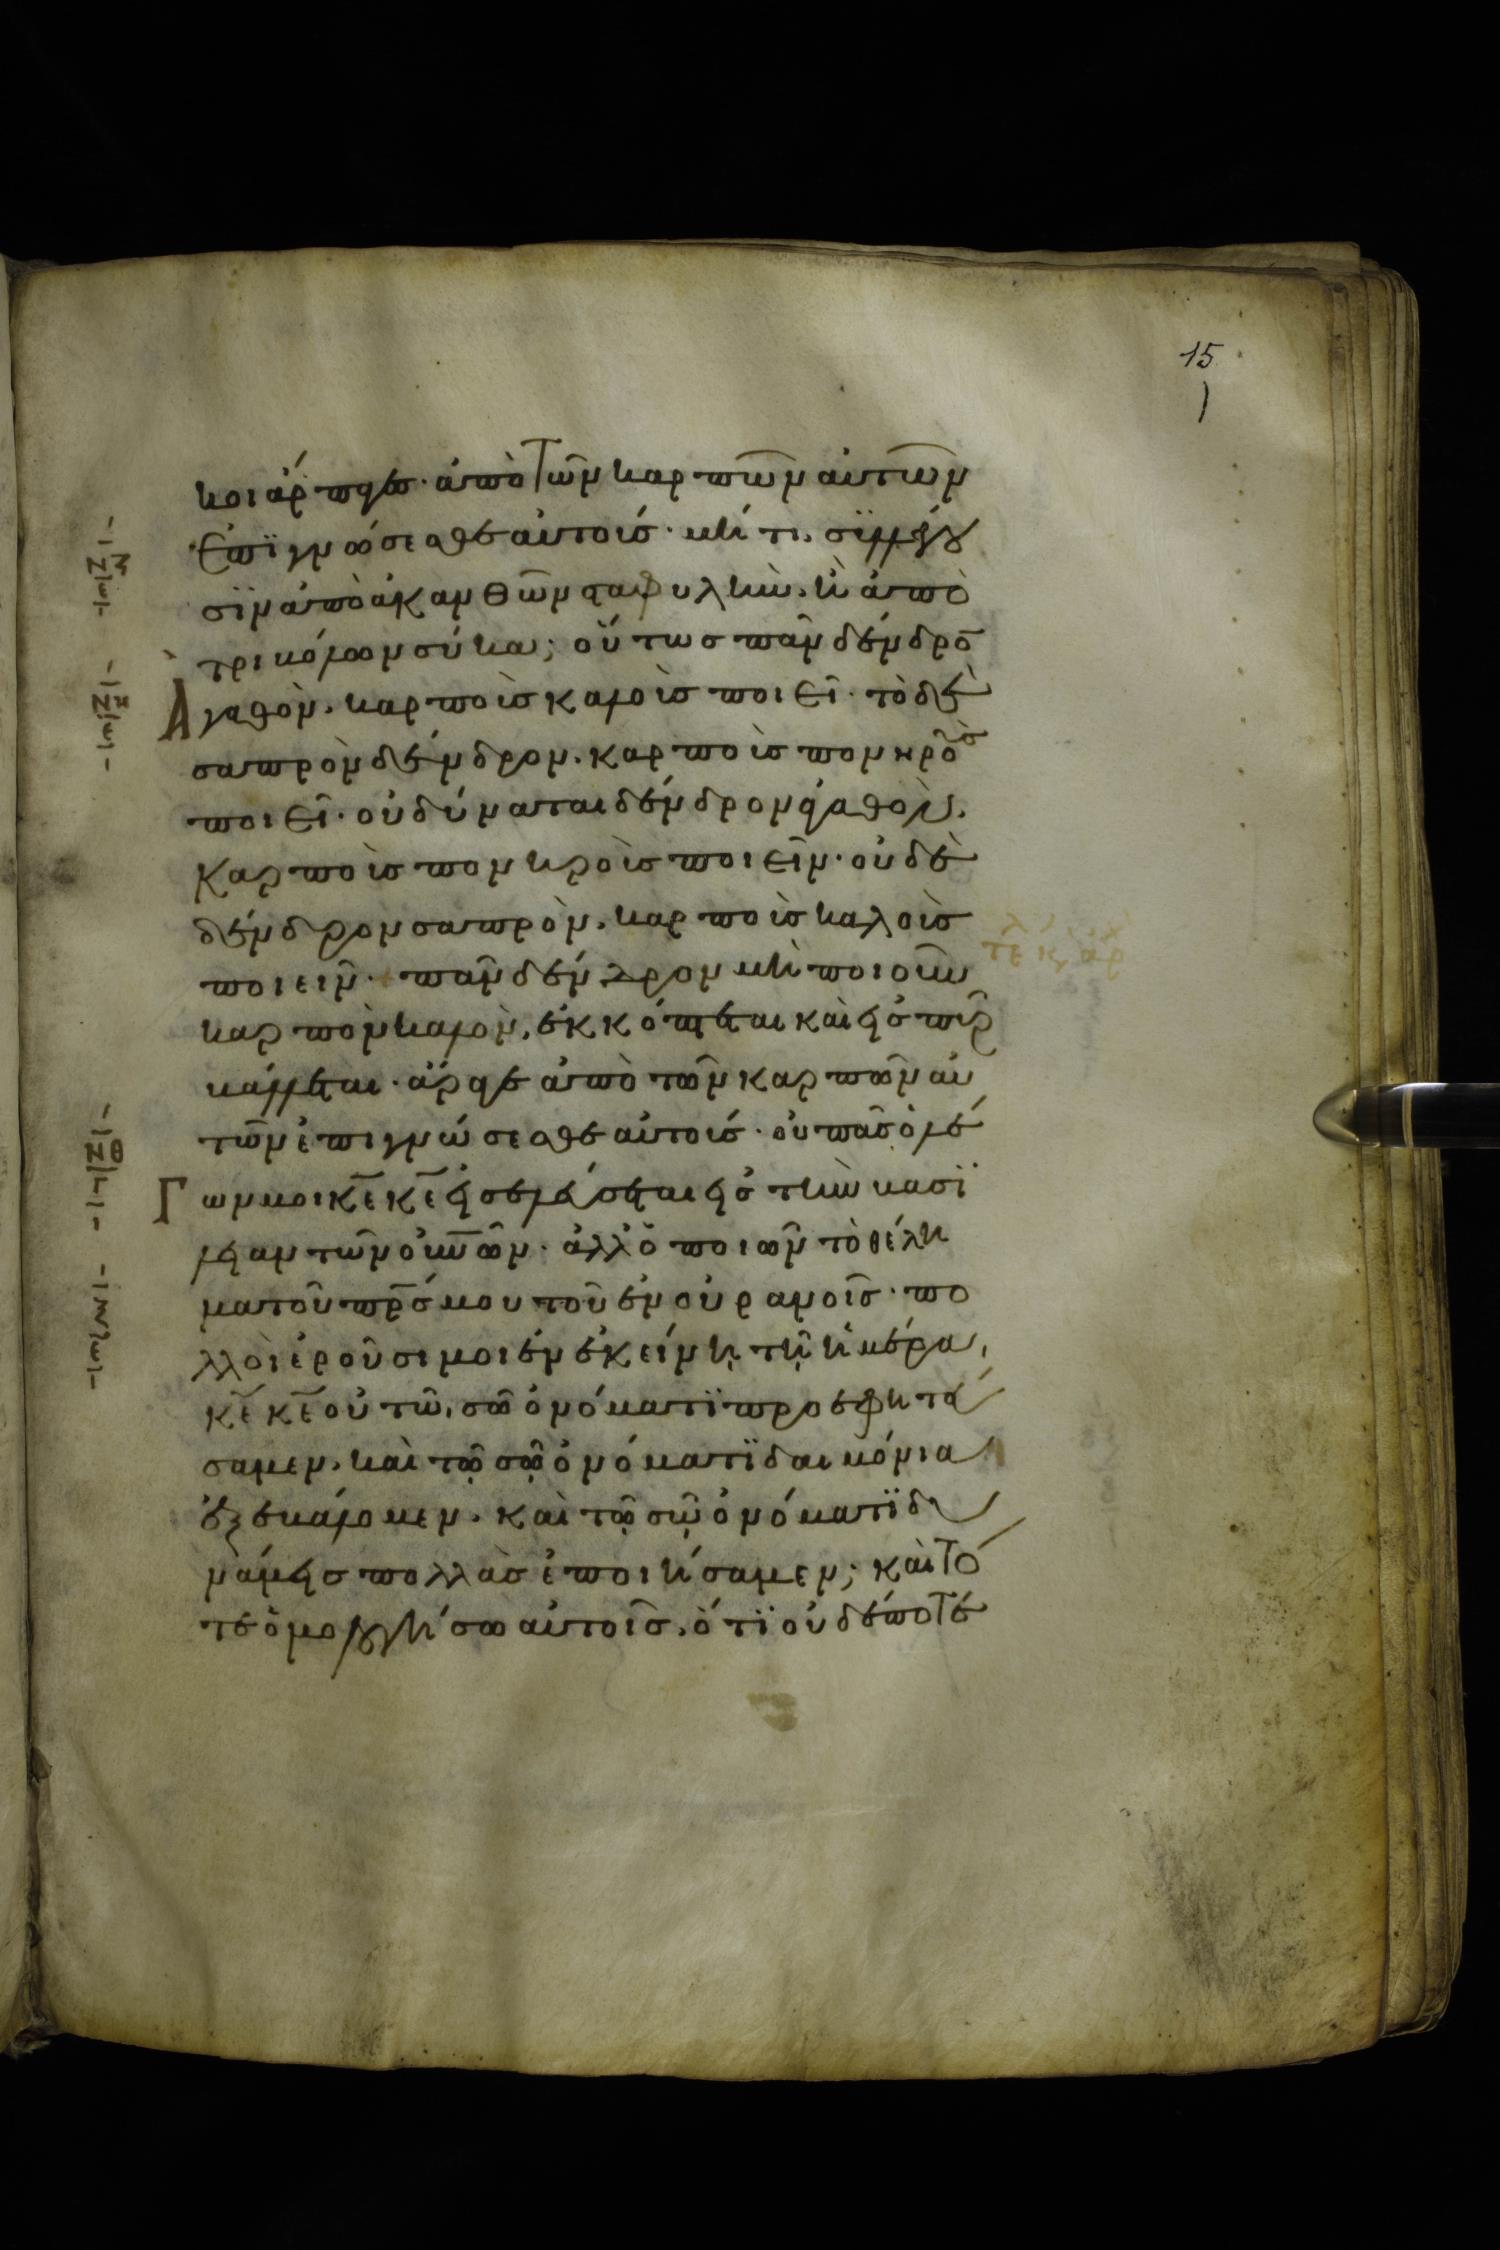 15
κοι ἅρπαγεσ· ἀπὸ τῶν καρπῶν αὐτῶν
ἐπϊγνώσεσθε αὐτούσ· μή τι συλλέγου
σϊν ἀπὸ ἀκανθῶν σταφυλὴν, ἢ ἀπὸ
τριβόλων σύκα; οὕτωσ πᾶν δένδρο̄
Ἀγαθὸν, καρποὺσ καλοὺσ ποιεῖ· τὸ δὲ
σαπρὸν δένδρον, καρποὺσ πονηροὺσ
ποιεῖ· οὐ δύναται δένδρον ἀγαθὸν,
καρποὺσ πονηροὺσ ποιεῖν· οὐδὲ
δένδρον σαπρὸν, καρποὺσ καλοὺσ
ποιεῖν· + πᾶν δένδρον μὴ ποιοῦν
καρπὸν καλὸν, ἐκκόπτεται καὶ εἰσ πῦρ
βάλλεται· ἄραγε ἀπὸ τῶν καρπῶν αὐ
τῶν ἐπιγνώσεσθε αὐτούσ· οὐ πᾶσ ὁ λέ
Γων μοι κ̅ε̅ κ̅ε̅ εἰσελεύσεται εἰσ τὴν βασϊ
λείαν τῶν οὐ̅ν̅ῶν· ἀλλ' ὁ ποιῶν τὸ θέλη
μα τοῦ π̅ρ̅σ̅ μου τοῦ ἐν οὐρανοῖσ· πο
λλοὶ ἐροῦσι μοι ἐν ἐκείνῃ τῇ ἡμέρα,
κ̅ε̅ κ̅ε̅ οὐ τῶ, σῶ ὀνόματϊ προεφητεύ
σαμεν, καὶ τῷ σῷ ὀνόματϊ δαιμόνια
ἐξεβάλομεν, καὶ τῷ σῷ ὀνόματϊ δυ
νάμεισ πολλὰσ ἐποιήσαμεν; καὶ τό
τε ὁμολογήσω αὐτοῖσ, ὅτϊ οὐδέποτε